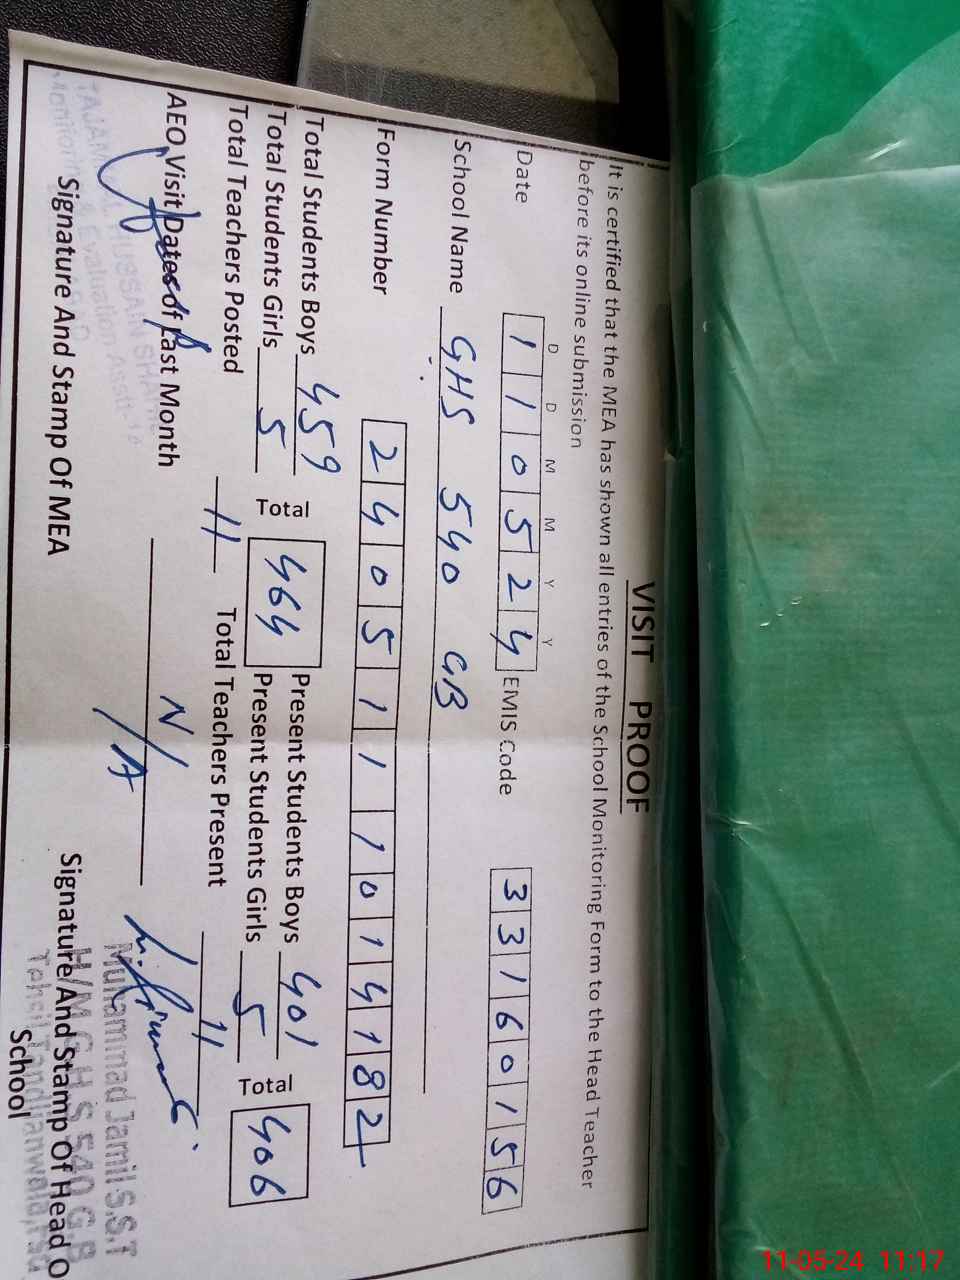 VISIT PROOF
It is certified that the MEA has shown all entries of the School Monitoring Form to the Head Teacher
before its online submission
D D M M Y Y
Date 1 1 0 5 2 4 EMIS Code 3 3 1 6 0 1 5 6
School Name GHS 540 GB
Form Number 2 4 0 5 1 1 1 0 1 4 1 8 2
Total Students Boys 459 Total 464 Present Students Boys 401 Total 406
Total Students Girls 5 Present Students Girls 5
Total Teachers Posted 11 Total Teachers Present 11
AEO Visit Dates of Last Month N/A
TAJAMMAL HUSSAIN
Monitoring & Evaluation Asstt-14
Signature And Stamp Of MEA
Muhammad Jamil S.S.T
H/M G.H.S 540 G.B
Tehsil Tandlianwala
Signature And Stamp Of Head O
School
11-05-24 11:17